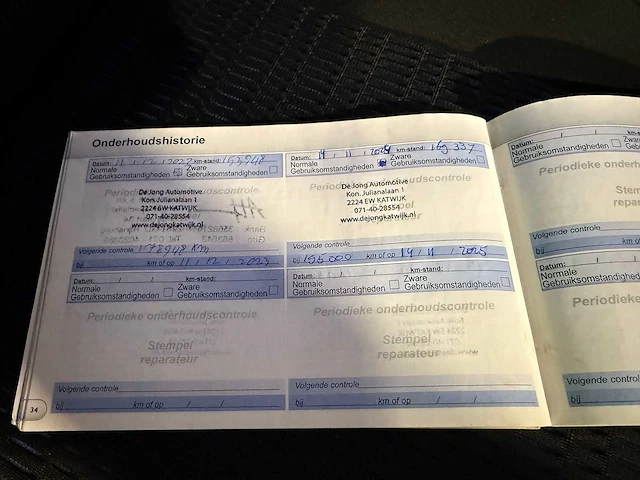 Onderhoudshistorie
Datum: 11 / 12 / 2022 km-stand:
Normale Gebruiksomstandigheden
Zware Gebruiksomstandigheden
De Jong Automotive
Kon. Julianalaan 1
2224 EW KATWIJK
071-40-28554
www.dejongkatwijk.nl
Volgende controle 178948 km
bij km of op 11 / 12 / 2023
Datum: / 11 / 2024 km-stand: 169 337
Normale Gebruiksomstandigheden
Zware Gebruiksomstandigheden
De Jong Automotive
Kon. Julianalaan 1
2224 EW KATWIJK
071-40-28554
www.dejongkatwijk.nl
Volgende controle
bij 195.000 km of op 19 / 11 / 2025
Datum: / / km-stand:
Normale Gebruiksomstandigheden
Zware Gebruiksomstandigheden
Periodieke onderhoudscontrole
Stempel
reparateur
Volgende controle
bij km of op / /
Datum: / / km-stand:
Normale Gebruiksomstandigheden
Zware Gebruiksomstandigheden
Periodieke onderhoudscontrole
Stempel
reparateur
Volgende controle
bij km of op / /
34
Datum: / /
Normale
Gebruiksomstandigheden
Periodieke
Volgende controle
bij km of
Datum: / /
Normale
Gebruiksomstandigheden
Periodieke
Volgende controle
bij